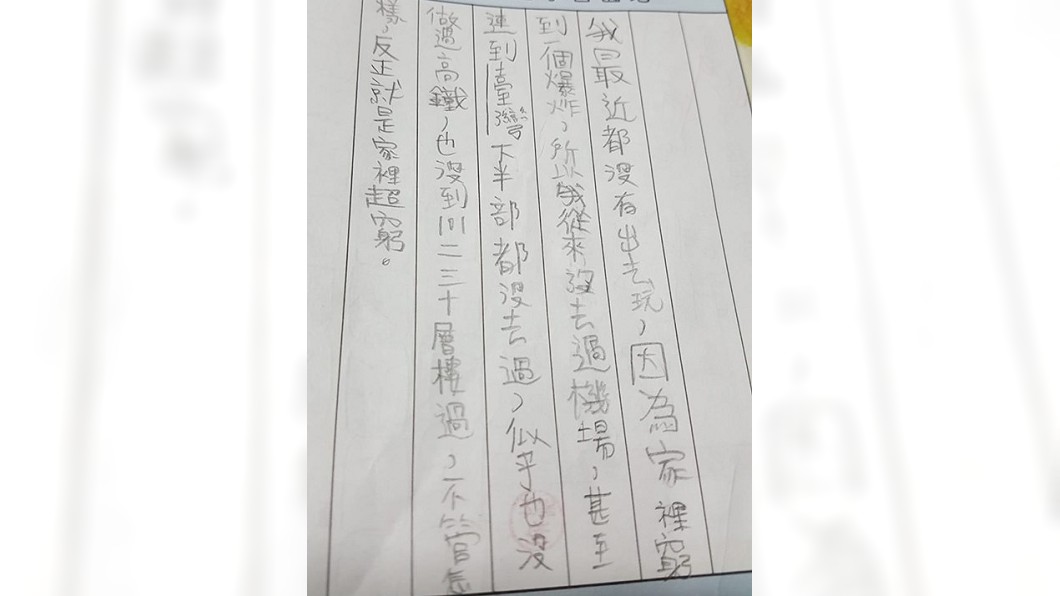 我最近都沒有出去玩，因為家裡窮
到一個爆炸，所以我從來沒去過機場，甚至
連到臺灣下半部都沒去過，似乎也沒
做過高鐵，也沒到101二三十層樓過，不管怎
樣，反正就是家裡超窮。